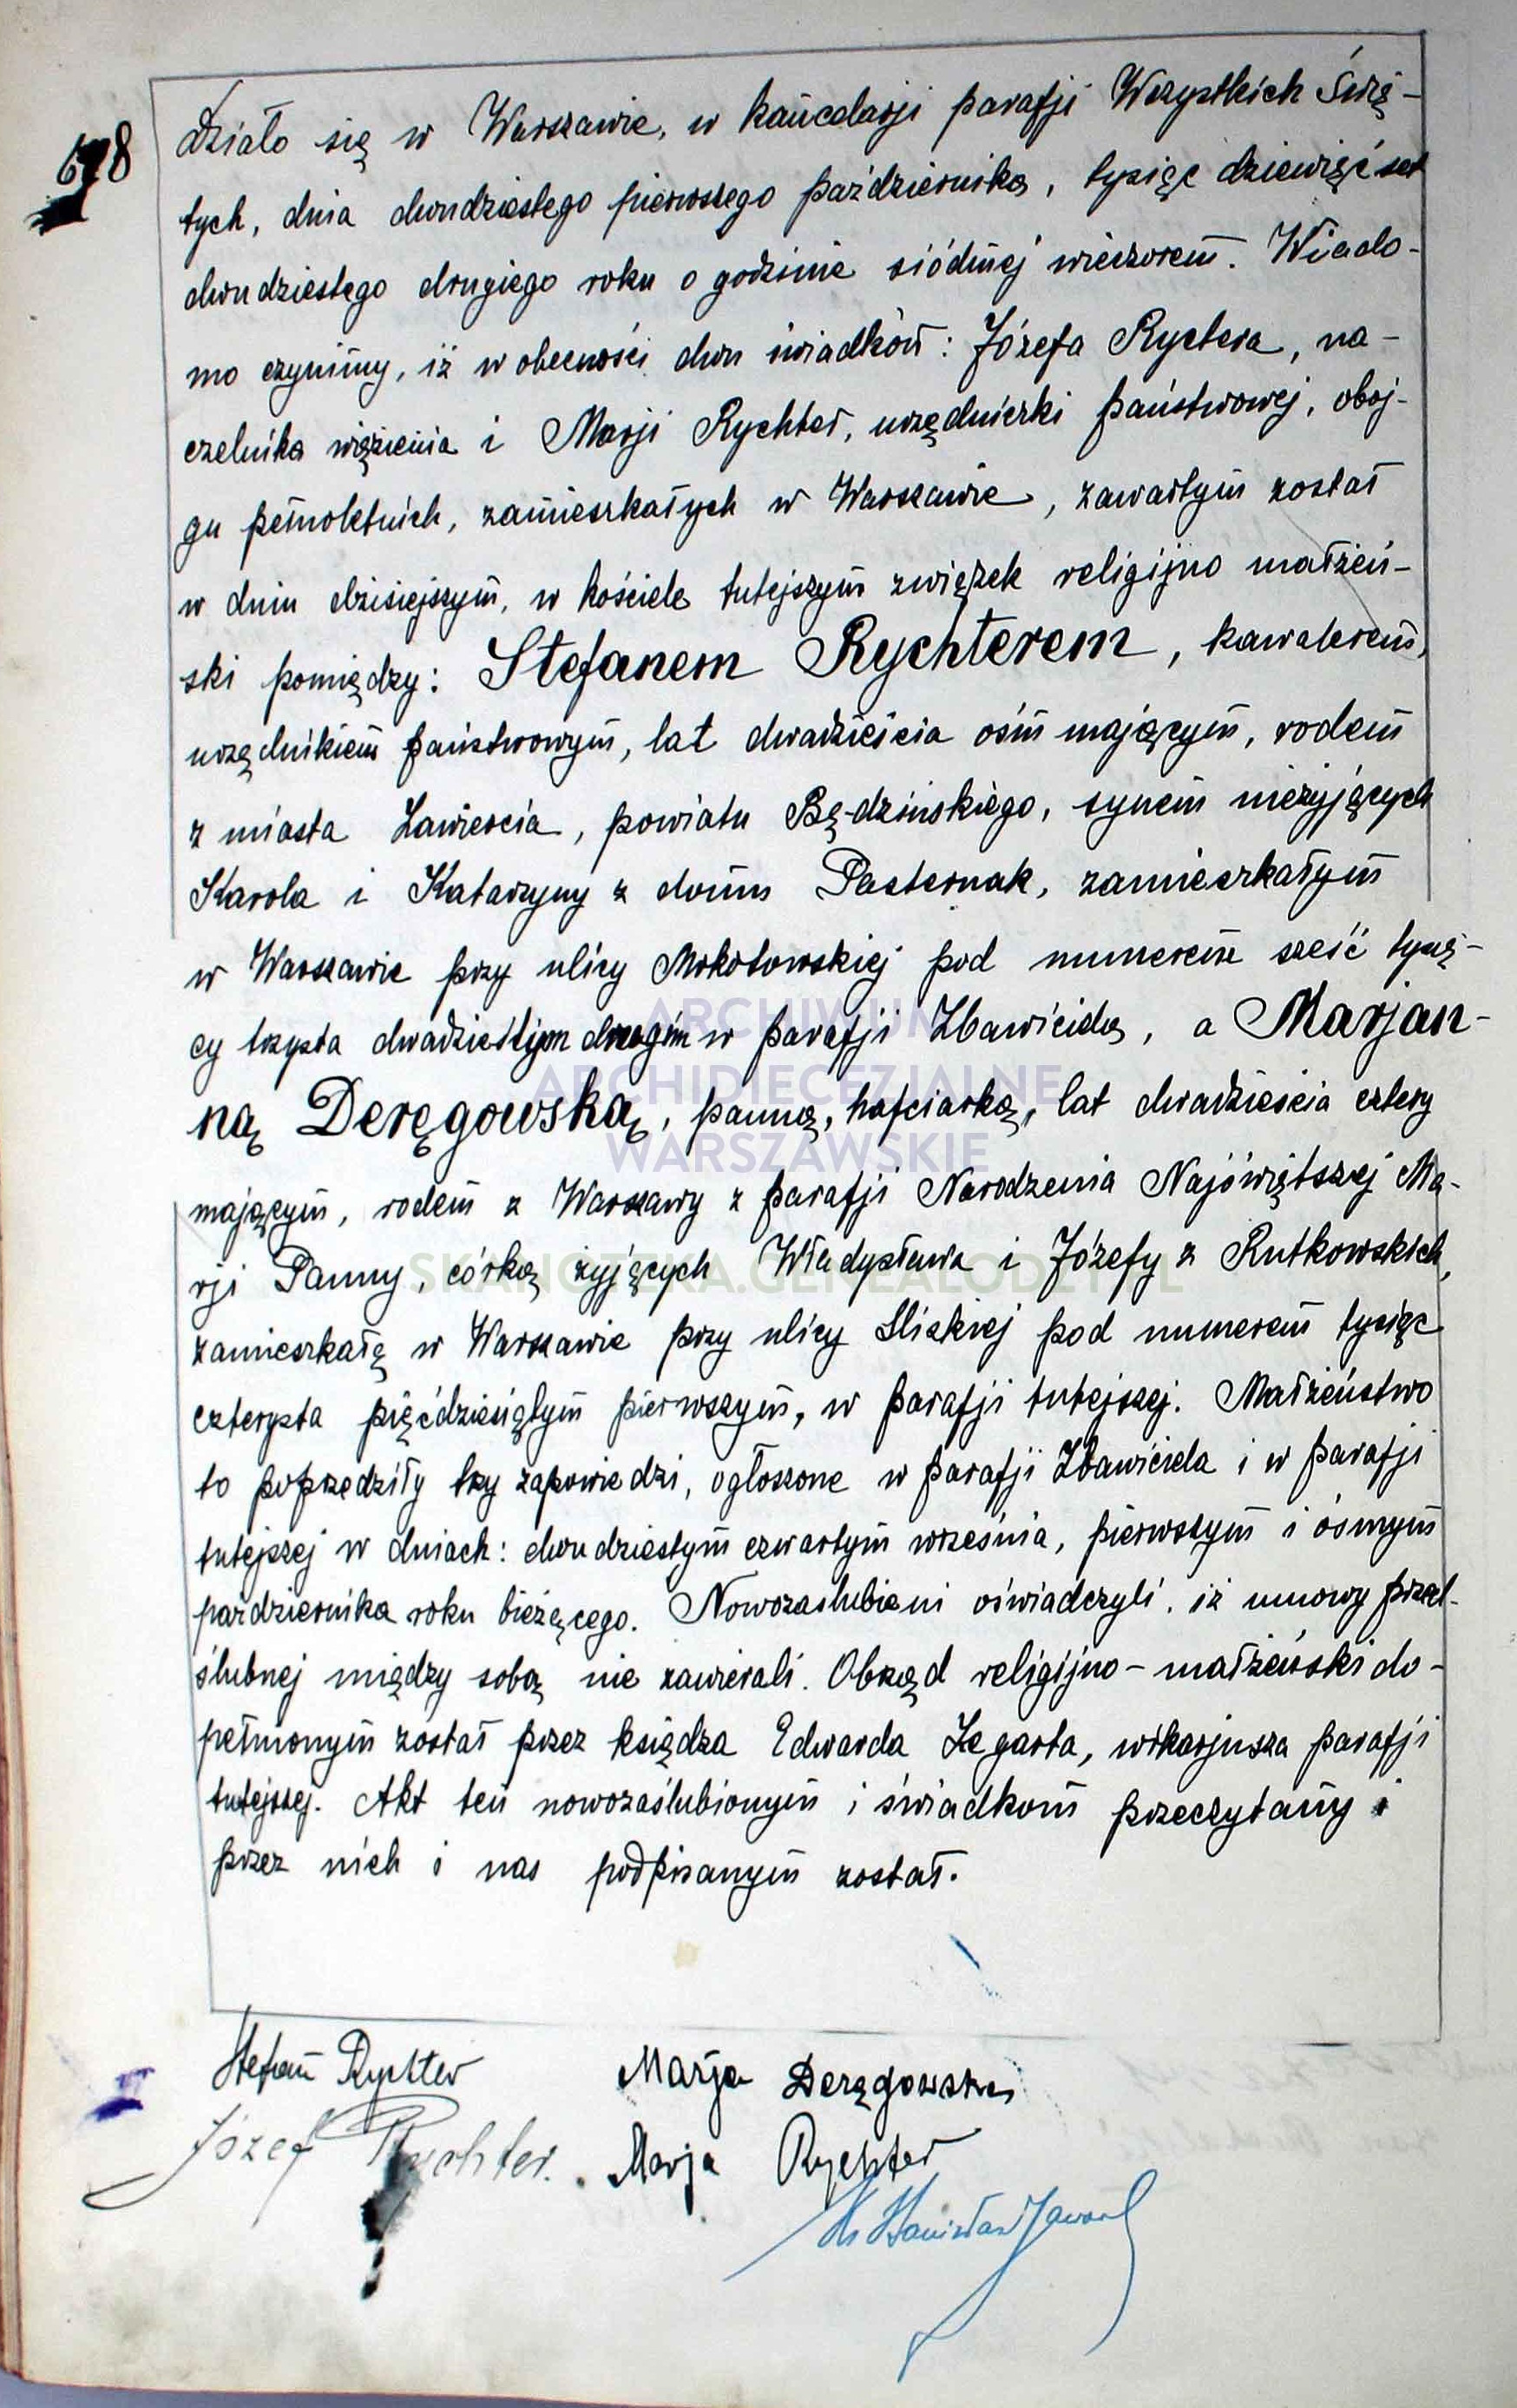 678
Działo się w Warszawie, w kancelarji parafji Wszystkich Świę-
tych, dnia dwudziestego pierwszego października, tysiąc dziewięćset
dwudziestego drugiego roku o godzinie siódmej wieczorem. Wiado-
mo czynimy, iż w obecności dwu świadków: Józefa Rychtera, na-
czelnika więzienia i Marji Rychter, urzędniczki państwowej, oboj-
gu pełnoletnich, zamieszkałych w Warszawie, zawartym został
w dniu dzisiejszym, w kościele tutejszym związek religijno małżeń-
ski pomiędzy: Stefanem Rychterem, kawalerem,
urzędnikiem państwowym, lat dwadzieścia ośm mającym, rodem
z miasta Zawiercia, powiatu Będzińskiego, synem nieżyjących
Karola i Katarzyny z domu Pasternak, zamieszkałym
w Warszawie przy ulicy Mokotowskiej pod numerem sześć tysię-
cy trzysta dwadziestym drugim w parafji Zbawiciela, a Marjan-
ną Deręgowską, panną, hafciarką, lat dwadzieścia cztery
mającym, rodem z Warszawy z parafji Narodzenia Najświętszej Ma-
rji Panny, córką żyjących Władysława i Józefy z Rutkowskich,
zamieszkałą w Warszawie przy ulicy Śliskiej pod numerem tysiąc
czterysta pięćdziesiątym pierwszym, w parafji tutejszej. Małżeństwo
to poprzedziły trzy zapowiedzi, ogłoszone w parafji Zbawiciela i w parafji
tutejszej w dniach: dwudziestym czwartym września, pierwszym i ósmym
października roku bieżącego. Nowozaślubieni oświadczyli, iż umowy przed-
ślubnej między sobą nie zawierali. Obrząd religijno-małżeński do-
pełnionym został przez księdza Edwarda Zegarta, wikarjusza parafji
tutejszej. Akt ten nowozaślubionym i świadkom przeczytany i
przez nich i nas podpisanym został.
Stefan Rychter Marja Deręgowska
Józef Rychter. Marja Rychter
Ks Stanisław
ARCHIWUM
ARCHIDIECEZJALNE
WARSZAWSKIE